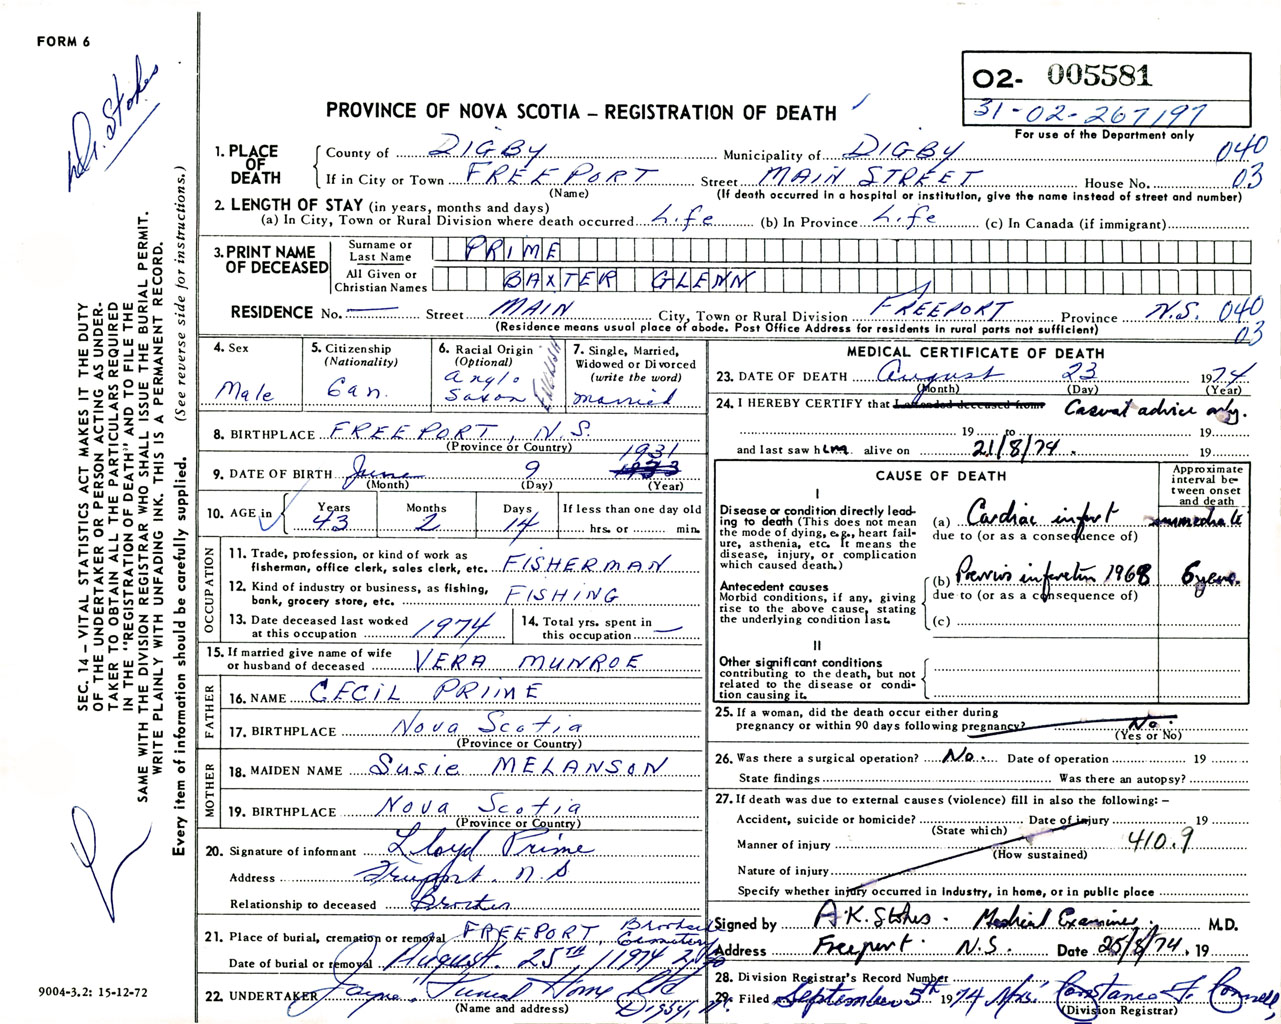 FORM 6
Dr. Stokes
O2- 005581
31-02-267197
For use of the Department only
PROVINCE OF NOVA SCOTIA – REGISTRATION OF DEATH
1. PLACE OF DEATH
County of DIGBY Municipality of DIGBY 040
If in City or Town FREEPORT Street MAIN STREET House No. 03
(Name) (If death occurred in a hospital or institution, give the name instead of street and number)
2. LENGTH OF STAY (in years, months and days)
(a) In City, Town or Rural Division where death occurred Life (b) In Province Life (c) In Canada (if immigrant)
3. PRINT NAME OF DECEASED
Surname or Last Name PRIME
All Given or Christian Names BAXTER GLENN
RESIDENCE No. — Street MAIN City, Town or Rural Division FREEPORT Province N.S. 040
(Residence means usual place of abode. Post Office Address for residents in rural parts not sufficient) 03
4. Sex
Male
5. Citizenship
(Nationality)
Can.
6. Racial Origin
(Optional)
Anglo
Saxon
ENGLISH
7. Single, Married,
Widowed or Divorced
(write the word)
Married
8. BIRTHPLACE FREEPORT, N.S.
(Province or Country)
9. DATE OF BIRTH June 9 1931 1933
(Month) (Day) (Year)
10. AGE in
Years Months Days If less than one day old
43 2 14 hrs. or min.
OCCUPATION
11. Trade, profession, or kind of work as
fisherman, office clerk, sales clerk, etc. FISHERMAN
12. Kind of industry or business, as fishing,
bank, grocery store, etc. FISHING
13. Date deceased last worked
at this occupation 1974
14. Total yrs. spent in
this occupation —
15. If married give name of wife
or husband of deceased VERA MUNROE
FATHER
16. NAME CECIL PRIME
17. BIRTHPLACE Nova Scotia
(Province or Country)
MOTHER
18. MAIDEN NAME Susie MELANSON
19. BIRTHPLACE Nova Scotia
(Province or Country)
20. Signature of informant Lloyd Prime
Address Freeport. N S
Relationship to deceased Brother
21. Place of burial, cremation or removal FREEPORT, Cemetery
Date of burial or removal August. 25TH, 1974
22. UNDERTAKER Jayne Funeral Home Ltd
(Name and address) Digby, N.
MEDICAL CERTIFICATE OF DEATH
23. DATE OF DEATH August 23 1974
(Month) (Day) (Year)
24. I HEREBY CERTIFY that I attended deceased from Casual advice only.
19 to 19
and last saw him alive on 21/8/74. 19
CAUSE OF DEATH
Approximate
interval be-
tween onset
and death
I
Disease or condition directly lead-
ing to death (This does not mean
the mode of dying, e.g., heart fail-
ure, asthenia, etc. It means the
disease, injury, or complication
which caused death.)
(a) Cardiac infarct immediate
due to (or as a consequence of)
Antecedent causes
Morbid conditions, if any, giving
rise to the above cause, stating
the underlying condition last.
(b) Previous infarction 1968 6 years.
due to (or as a consequence of)
(c)
II
Other significant conditions
contributing to the death, but not
related to the disease or condi-
tion causing it.
25. If a woman, did the death occur either during
pregnancy or within 90 days following pregnancy? No.
(Yes or No)
26. Was there a surgical operation? No. Date of operation 19
State findings Was there an autopsy?
27. If death was due to external causes (violence) fill in also the following: –
Accident, suicide or homicide? Date of injury 19
(State which)
Manner of injury 410.9
(How sustained)
Nature of injury
Specify whether injury occurred in industry, in home, or in public place
Signed by A.K. Stokes. Medical Examiner. M.D.
Address Freeport. N.S. Date 25/8/74. 19
28. Division Registrar's Record Number
29. Filed September 5th 1974 Mrs. Constance F. Connell,
(Division Registrar)
SEC. 14 – VITAL STATISTICS ACT MAKES IT THE DUTY
OF THE UNDERTAKER OR PERSON ACTING AS UNDER-
TAKER TO OBTAIN ALL THE PARTICULARS REQUIRED
IN THE "REGISTRATION OF DEATH" AND TO FILE THE
SAME WITH THE DIVISION REGISTRAR WHO SHALL ISSUE THE BURIAL PERMIT.
WRITE PLAINLY WITH UNFADING INK. THIS IS A PERMANENT RECORD.
Every item of information should be carefully supplied. (See reverse side for instructions.)
9004-3.2: 15-12-72